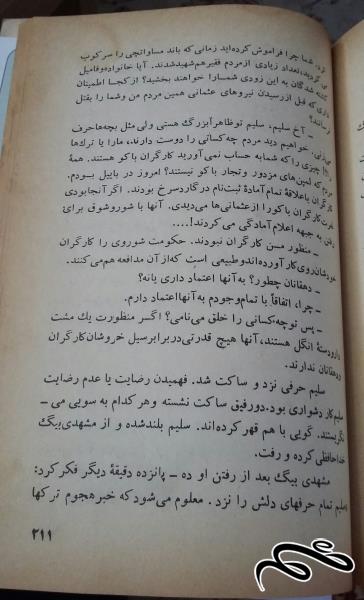 نزد. شما چرا فراموش کرده‌اید زمانی که باند مساواتچی را سرکوب
می کردید، تعداد زیادی از مردم فقیر هم شهید شدند. آیا خانواده و فامیل
کشته شدگان به این زودی شما را خواهند بخشید؟ از کجا اطمینان
داری که قبل از رسیدن نیروهای عثمانی همین مردم من و شما را بقتل
نرسانند؟
ــ آخ سلیم، سلیم تو ظاهراً بزرگ هستی ولی مثل بچه‌ها حرف
میزنی. خواهیم دید مردم چه کسانی را دوست دارند، ما را یا ترک‌ها
را؟! چیزی را که شما به حساب نمی‌آورید کارگران باکو هستند. همهٔ
مردم که لمپن‌های مزدور و تجار باکو نیستند؟ امروز در بایبل بودم.
کارگران با علاقهٔ تمام آمادهٔ ثبت‌نام در گارد سرخ بودند. اگر آنجا بودی
نفرت کارگران باکو را از عثمانی‌ها می‌دیدی. آنها با شور و شوق برای
رفتن به جبهه اعلام آمادگی می‌کردند!....
ــ منظور من کارگران نبودند. حکومت شوروی را کارگران
خودشان روی کار آورده‌اند و طبیعی است که از آن مدافعه هم می‌کنند.
ــ دهقانان چطور؟ به آنها اعتماد داری یا نه؟
ــ چرا، اتفاقاً با تمام وجودم به آنها اعتماد دارم.
ــ پس تو چه کسانی را خلق می‌نامی؟ اگر منظورت یك مشت
دار و دستهٔ انگل هستند، آنها هیچ قدرتی در برابر سیل خروشان کارگران
و دهقانان ندارند.
سلیم حرفی نزد و ساکت شد. فهمیدن رضایت یا عدم رضایت
سلیم کار دشواری بود. دو رفیق ساکت نشسته و هر کدام به سویی می ــ
نگریستند. گویی با هم قهر کرده‌اند. سلیم بلند شده و از مشهدی بیگ
خداحافظی کرده و رفت.
مشهدی بیگ بعد از رفتن او ده ــ پانزده دقیقهٔ دیگر فکر کرد:
«سلیم تمام حرفهای دلش را نزد. معلوم می‌شود که خبر هجوم ترکها
۲۱۱